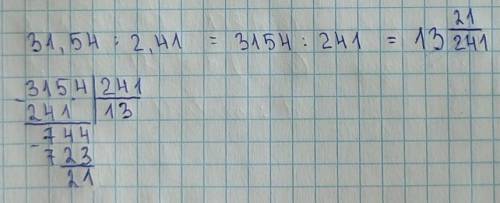 31,54 : 2,41 = 3154 : 241 = 13 21/241
-3154 | 241
241 | 13
744
-723
21